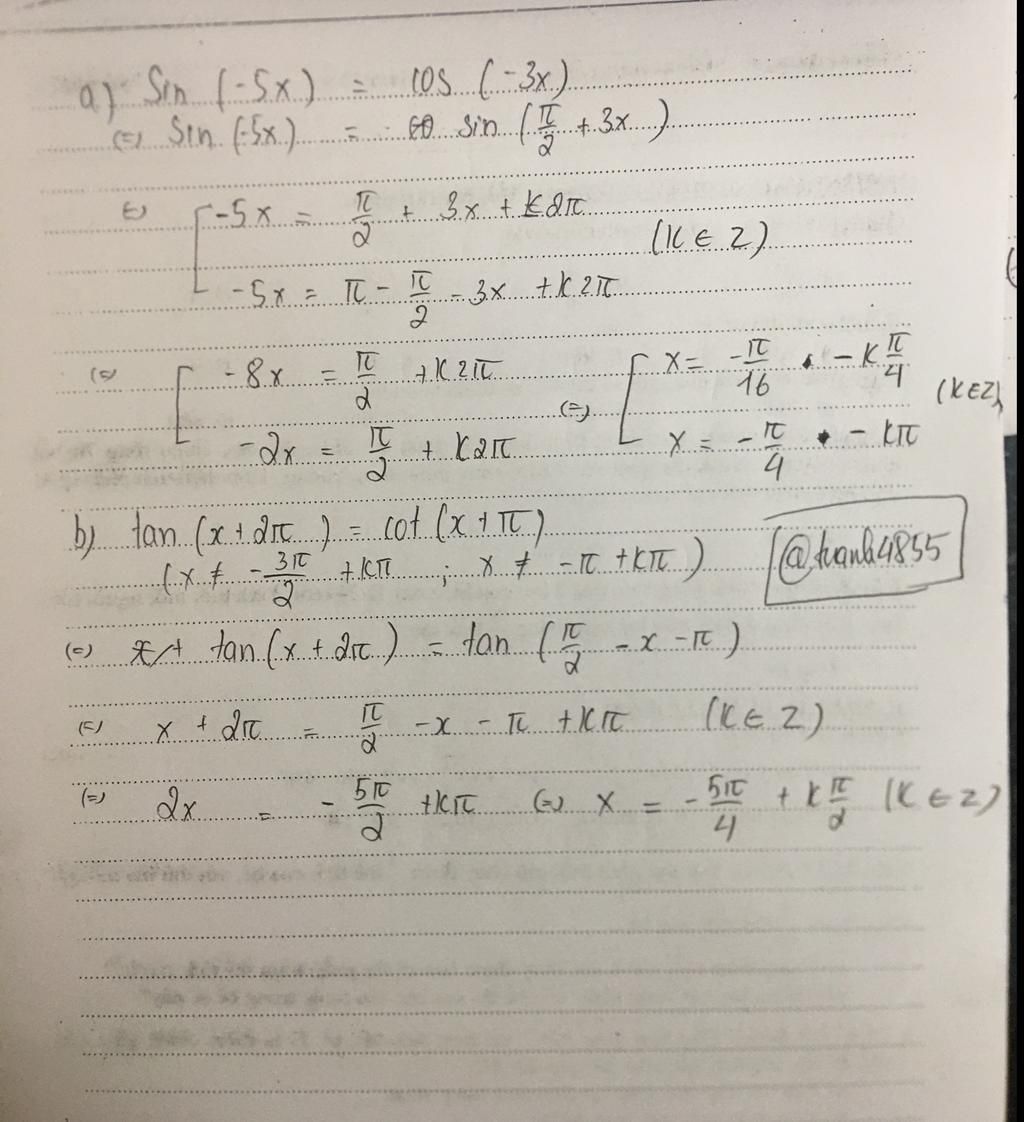 a) Sin (-5x) = cos (-3x)
(=) Sin (-5x) = sin (π/2 + 3x)
(=) [ -5x = π/2 + 3x + k2π
(K ∈ Z)
-5x = π - π/2 - 3x + k2π
(=) [ -8x = π/2 + k2π (=) [ x = -π/16 - k π/4
(K ∈ Z)
-2x = π/2 + k2π x = -π/4 - kπ
b) tan (x + 2π) = cot (x + π)
(x ≠ - 3π/2 + kπ ; x ≠ -π + kπ)
@tvanh4855
(=) tan (x + 2π) = tan (π/2 - x - π)
(=) x + 2π = π/2 - x - π + kπ (K ∈ Z)
(=) 2x = - 5π/2 + kπ (=) x = - 5π/4 + k π/2 (K ∈ Z)